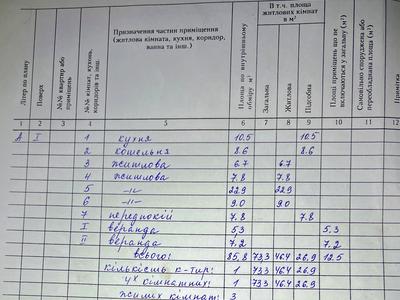 Літер по плану
Поверх
№№ квартир або приміщень
№№ кімнат, кухонь, коридорів та інш.
Призначення частин приміщення
(житлова кімната, кухня, коридор,
ванна та інш.)
Площа по внутрішньому обміру м²
В т.ч. площа
житлових кімнат
в м²
Загальна
Житлова
Підсобна
Площі приміщень що не включаються у загальну (м²)
Самовільно споруджена або переобладнана площа (м²)
Примітка
1 2 3 4 5 6 7 8 9 10 11 12
А I 1 кухня 10.5 10.5
2 котельня 8.6 8.6
3 житлова 6.7 6.7
4 житлова 7.8 7.8
5 -//- 22.9 22.9
6 -//- 9.0 9.0
7 передпокій 7.8 7.8
I веранда 5.3 5.3
II веранда 7.2 7.2
всього: 85,8 73,3 46.4 26,9 12.5
кількість к-тир: 1 73,3 46.4 26.9
4х кімнатних: 1 73.3 46.4 26.9
житих кімнат: 3